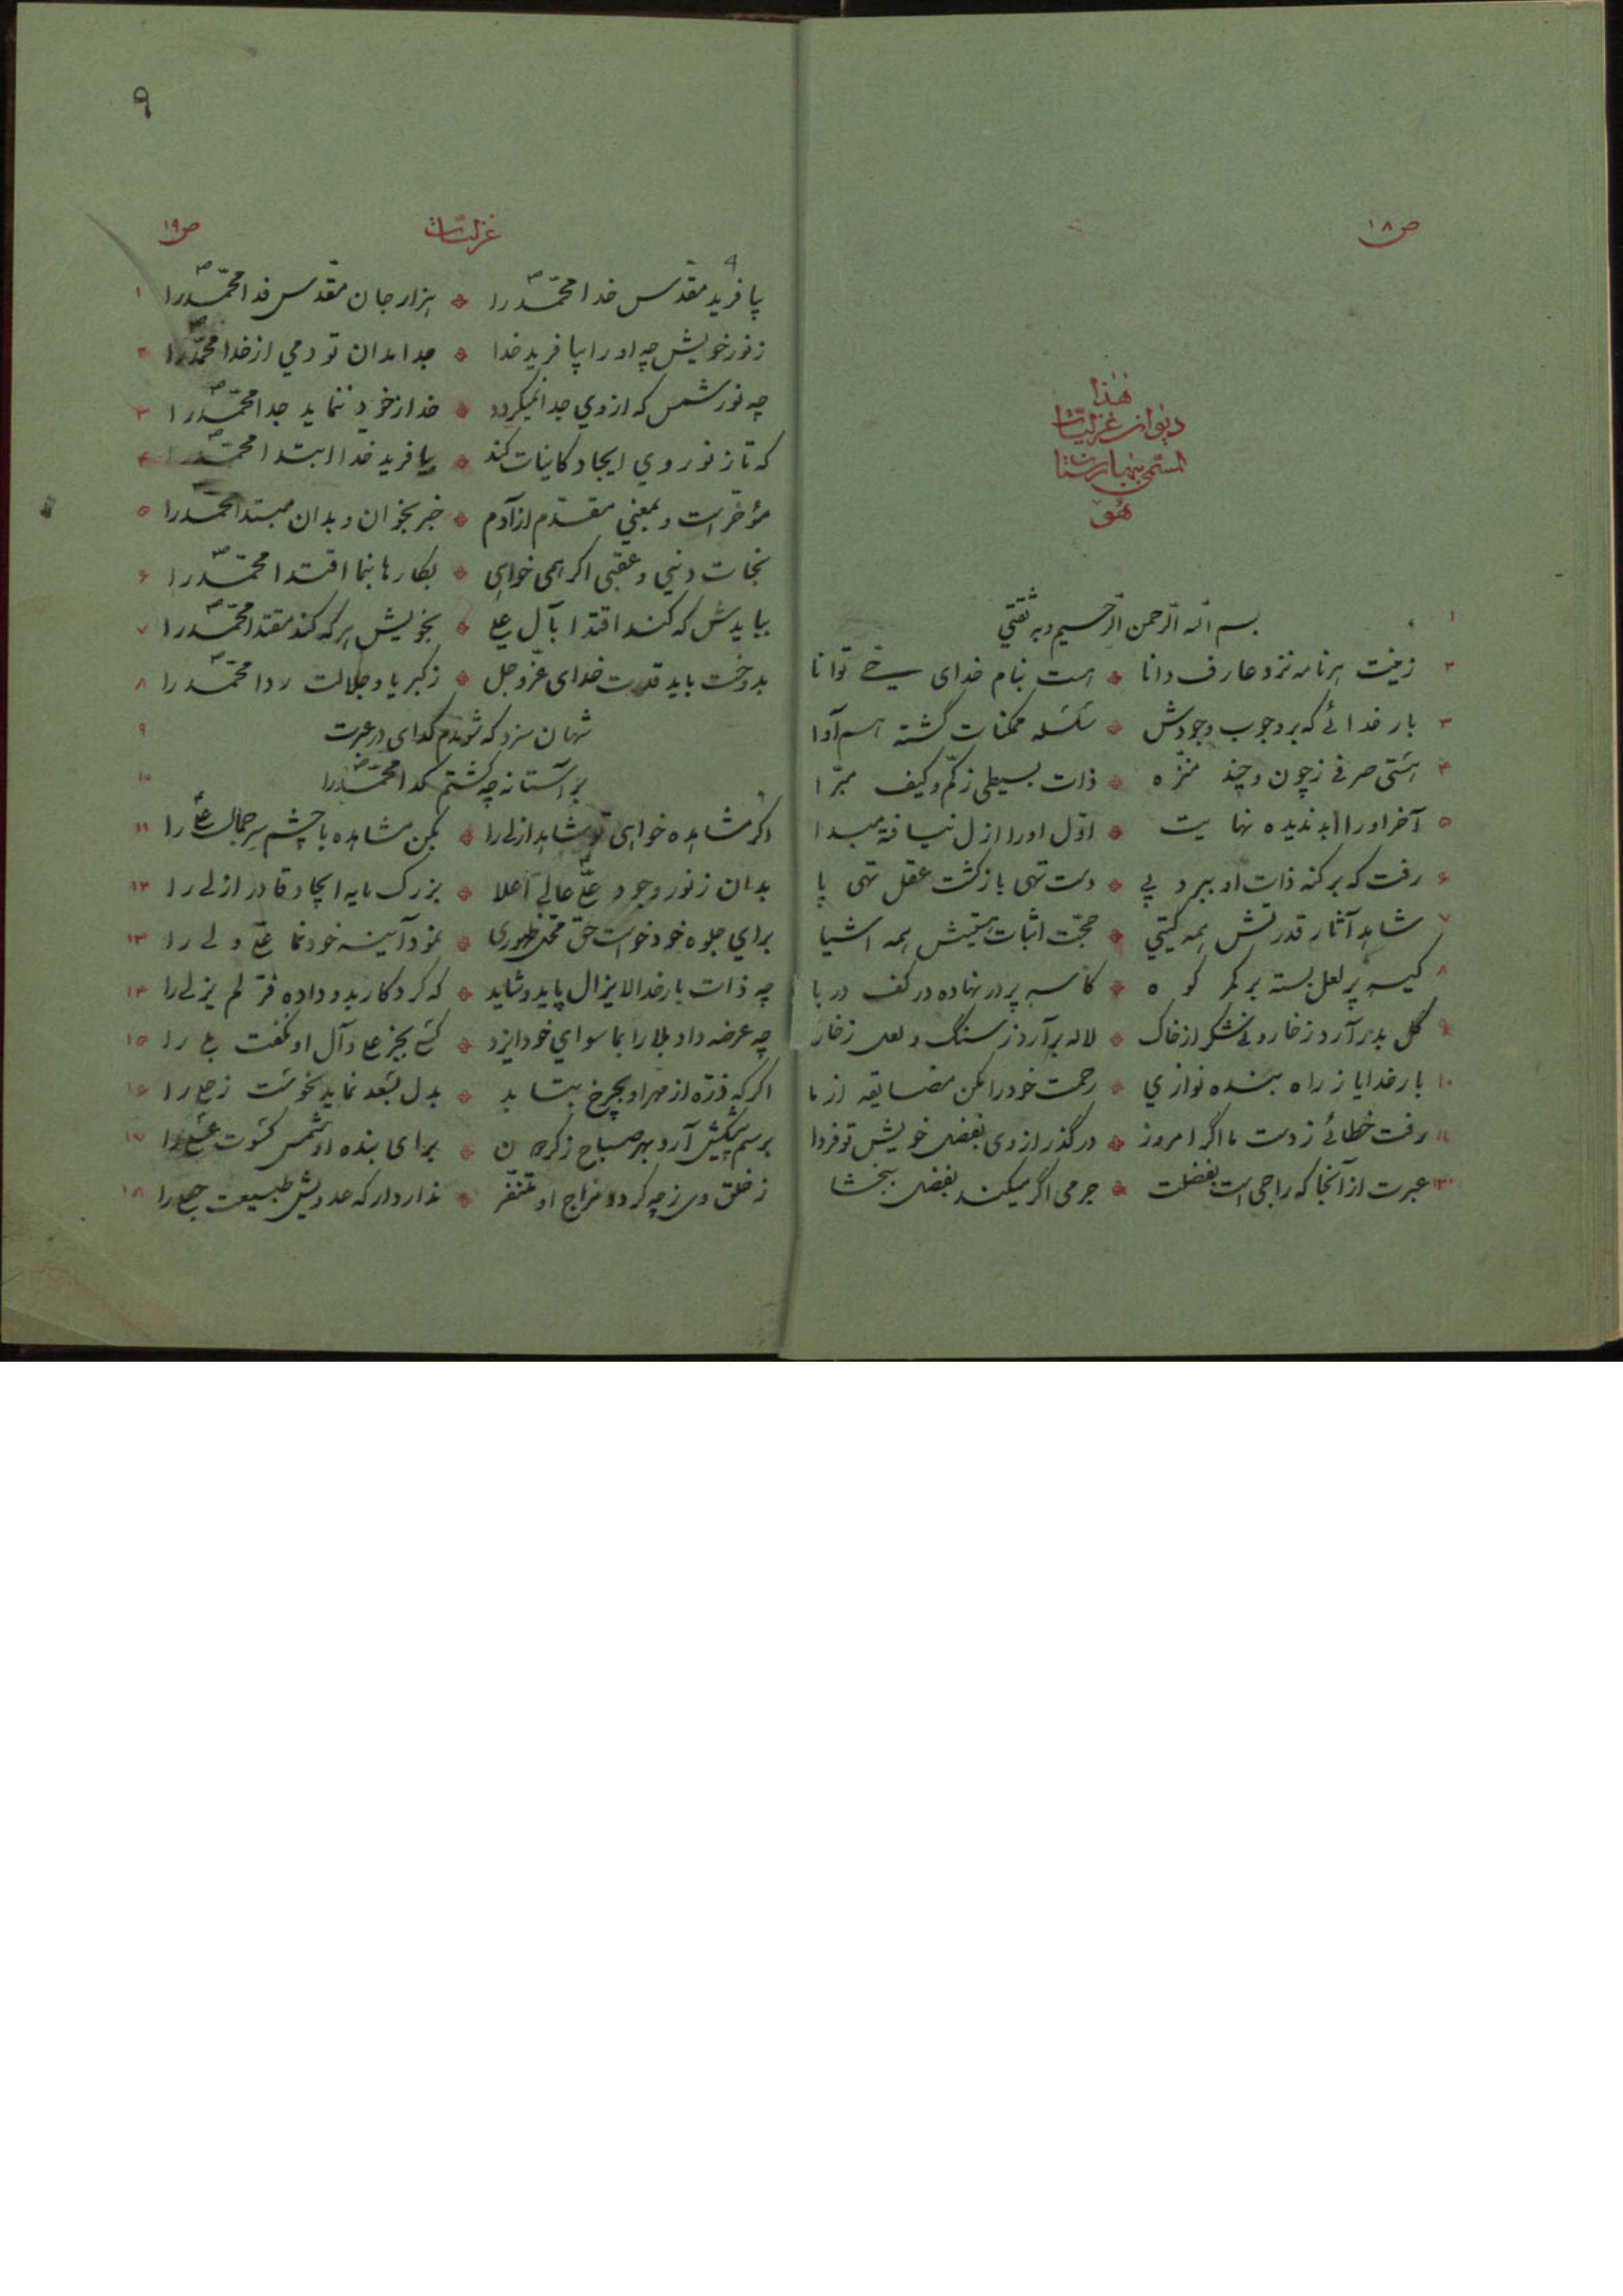 ص ۱۸
هٰذا
دیوان غزلیات
المسمی ببهارستان
هُو
۱ بسم الله الرحمن الرحیم و به ثقتی
۲ زینت هر نامه نزد عارف دانا ٭ هست بنام خدای توانا
۳ بار خدائے که بر وجوب وجودش ٭ سلسله ممکنات گشته هم آوا
۴ هستی صرفی ز چون و چند منزّه ٭ ذات بسیطی ز کمّ و کیف مبرّا
۵ آخر او را ابد ندیده نهایت ٭ اوّل او را ازل نیافته مبدا
۶ رفت که بر کنه ذات او ببرد پی ٭ دست تهی بازگشت عقل تهی پا
۷ شاهد آثار قدرتش همه گیتی ٭ حجّت اثبات هستیش همه اشیا
۸ کیسه پر لعل بسته بر کمر کوه ٭ کاسه پر در نهاده در کف دریا
۹ گل بدر آرد ز خار و نی شکر از خاک ٭ لاله برآرد ز سنگ و لعل ز خار
۱۰ بار خدایا ز راه بنده نوازی ٭ رحمت خود را مکن مضایقه از ما
۱۱ رفت خطائے ز دست ما اگر امروز ٭ در گذر از وی بفضل خویش تو فردا
۱۲ عبرت از آنجا که راجی است بفضلت ٭ جرمی اگر میکند بفضل ببخشا
۹
غزلیات
ص ۱۹
بیافرید مقدّس خدا محمّد را ٭ هزار جان مقدّس فدا محمّد را ۱
ز نور خویش چه او را بیافرید خدا ٭ جدا مدان تو دمی از خدا محمّد را ۲
چه نور شمس که از وی جدا نمیگردد ٭ خدا ز خود ننماید جدا محمّد را ۳
که تا ز نور وی ایجاد کاینات کند ٭ بیافرید خدا ابتدا محمّد را ۴
مؤخّر است و بمعنی مقدّم از آدم ٭ خبر بخوان و بدان مبتدا محمّد را ۵
نجات دنیی و عقبی اگر همی خواهی ٭ بکارها بنما اقتدا محمّد را ۶
ببایدش که کند اقتدا بآل علی ٭ بخویش هر که کند مقتدا محمّد را ۷
بدوخت باید قدرت خدای عزّ و جل ٭ ز کبریا و جلالت ردا محمّد را ۸
شهان سزد که شوندم گدای در عبرت ۹
بر آستانه چه گشتم گدا محمّد را ۱۰
اگر مشاهده خواهی تو شاهد ازلی را ٭ بکن مشاهده با چشم سر جمال علی را ۱۱
بدان ز نور وجود علّی عالی اعلا ٭ بزرگ مایه ایجاد قادر ازلی را ۱۲
برای جلوه خود خواست حق ظهوری ٭ نمود آینه خودنما علّی ولی را ۱۳
چه ذات بار خدا لایزال پاید و شاید ٭ که کردگار بدو داده فرّ لم یزلی را ۱۴
چه عرضه داد بلا را بما سوای خود ایزد ٭ کسی بجز علی و آل او نگفت بلی را ۱۵
اگر که ذرّه از مهر او بچرخ بتابد ٭ بدل بسعد نماید نحوست زحلی را ۱۶
برسم پیشکش آرد بهر صباح ٭ برای بنده او شمس کسوت را ۱۷
ز خلق وی ز چه گردد مزاج او متنفّر ٭ را ۱۸